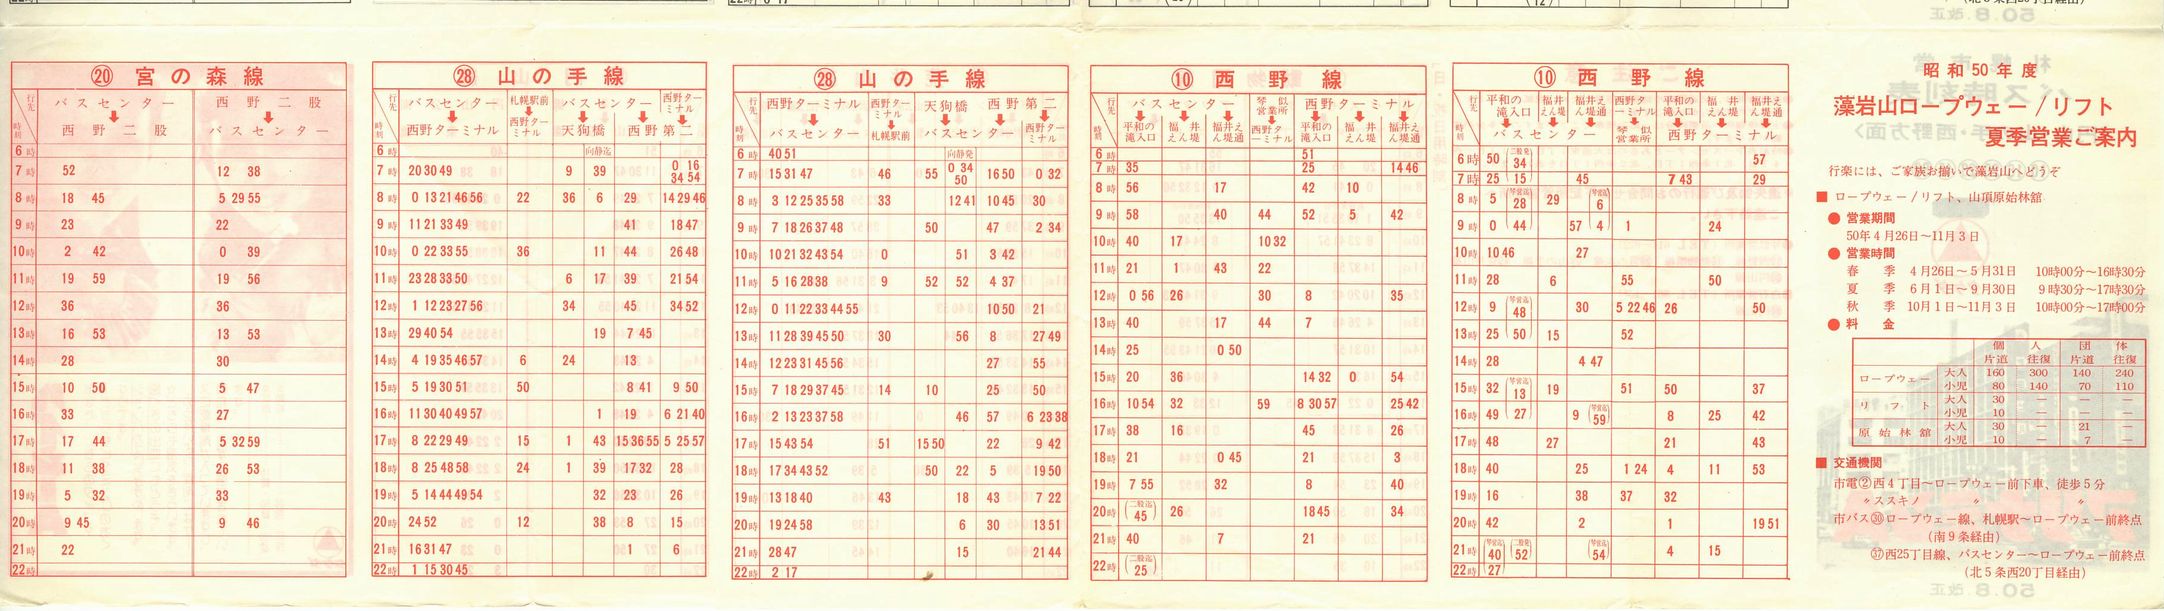 ⑳ 宮の森線
行先
時刻
バスセンター 西野二股
西野二股 バスセンター
6時
7時 52 12 38
8時 18 45 5 29 55
9時 23 22
10時 2 42 0 39
11時 19 59 19 56
12時 36 36
13時 16 53 13 53
14時 28 30
15時 10 50 5 47
16時 33 27
17時 17 44 5 32 59
18時 11 38 26 53
19時 5 32 33
20時 9 45 9 46
21時 22
22時
㉘ 山の手線
行先
時刻
バスセンター 札幌駅前 バスセンター 西野ターミナル
西野ターミナル 西野ターミナル 天狗橋 西野第二
6時 向静迄
7時 20 30 49 9 39 0 16 34 54
8時 0 13 21 46 56 22 36 6 29 14 29 46
9時 11 21 33 49 41 18 47
10時 0 22 33 55 36 11 44 26 48
11時 23 28 33 50 6 17 39 21 54
12時 1 12 23 27 56 34 45 34 52
13時 29 40 54 19 7 45
14時 4 19 35 46 57 6 24 13
15時 5 19 30 51 50 8 41 9 50
16時 11 30 40 49 57 1 19 6 21 40
17時 8 22 29 49 15 1 43 15 36 55 5 25 57
18時 8 25 48 58 24 1 39 17 32 28
19時 5 14 44 49 54 32 23 26
20時 24 52 12 38 8 15
21時 16 31 47 1 6
22時 1 15 30 45
㉘ 山の手線
行先
時刻
西野ターミナル 西野ターミナル 天狗橋 西野第二
バスセンター 札幌駅前 バスセンター 西野ターミナル
6時 40 51 向静発
7時 15 31 47 46 55 0 34 50 16 50 0 32
8時 3 12 25 35 58 33 12 41 10 45 30
9時 7 18 26 37 48 50 47 2 34
10時 10 21 32 43 54 0 51 3 42
11時 5 16 28 38 9 52 52 4 37
12時 0 11 22 33 44 55 10 50 21
13時 11 28 39 45 50 30 56 8 27 49
14時 12 23 31 45 56 27 55
15時 7 18 29 37 45 14 10 25 50
16時 2 13 23 37 58 46 57 6 23 38
17時 15 43 54 51 15 50 22 9 42
18時 17 34 43 52 50 22 5 19 50
19時 13 18 40 43 18 43 7 22
20時 19 24 58 6 30 13 51
21時 28 47 15 21 44
22時 2 17
⑩ 西野線
行先
時刻
バスセンター 琴似営業所 西野ターミナル
平和の滝入口 福井えん堤 福井えん堤通 西野ターミナル 平和の滝入口 福井えん堤 福井えん堤通
6時 51
7時 35 25 14 46
8時 56 17 42 10
9時 58 40 44 52 5 42
10時 40 17 10 32
11時 21 1 43 22
12時 0 56 26 30 8 35
13時 40 17 44 7
14時 25 0 50
15時 20 36 14 32 0 54
16時 10 54 32 59 8 30 57 25 42
17時 38 16 45 26
18時 21 0 45 21 3
19時 7 55 32 8 40
20時 (二股迄 45) 26 18 45 34
21時 40 7 21
22時 (二股迄 25)
⑩ 西野線
行先
時刻
平和の滝入口 福井えん堤 福井えん堤通 西野ターミナル 平和の滝入口 福井えん堤 福井えん堤通
バスセンター 琴似営業所 西野ターミナル
6時 50 (二股発 34) 57
7時 25 15 45 7 43 29
8時 5 (琴営迄 28) 29 (琴営迄 6)
9時 0 44 57 4 1 24
10時 10 46 27
11時 28 6 55 50
12時 9 (琴営迄 48) 30 5 22 46 26 50
13時 25 50 15 52
14時 28 4 47
15時 32 (琴営迄 13) 19 51 50 37
16時 49 27 9 (琴営迄 59) 8 25 42
17時 48 27 21 43
18時 40 25 1 24 4 11 53
19時 16 38 37 32
20時 42 2 1 19 51
21時 (琴営迄 40) (二股発 52) (琴営迄 54) 4 15
22時 27
昭和50年度
藻岩山ロープウェー/リフト
夏季営業ご案内
行楽には、ご家族お揃いで藻岩山へどうぞ
■ ロープウェー/リフト、山頂原始林舘
● 営業期間
50年4月26日〜11月3日
● 営業時間
春季 4月26日〜5月31日 10時00分〜16時30分
夏季 6月1日〜9月30日 9時30分〜17時30分
秋季 10月1日〜11月3日 10時00分〜17時00分
● 料金
個人 団体
片道 往復 片道 往復
ロープウェー 大人 160 300 140 240
小児 80 140 70 110
リフト 大人 30 — — —
小児 10 — — —
原始林舘 大人 30 — 21 —
小児 10 — 7 —
■ 交通機関
市電②西4丁目〜ロープウェー前下車、徒歩5分
〃ススキノ 〃 〃
市バス㉚ロープウェー線、札幌駅〜ロープウェー前終点
(南9条経由)
㊲西25丁目線、バスセンター〜ロープウェー前終点
(北5条西20丁目経由)